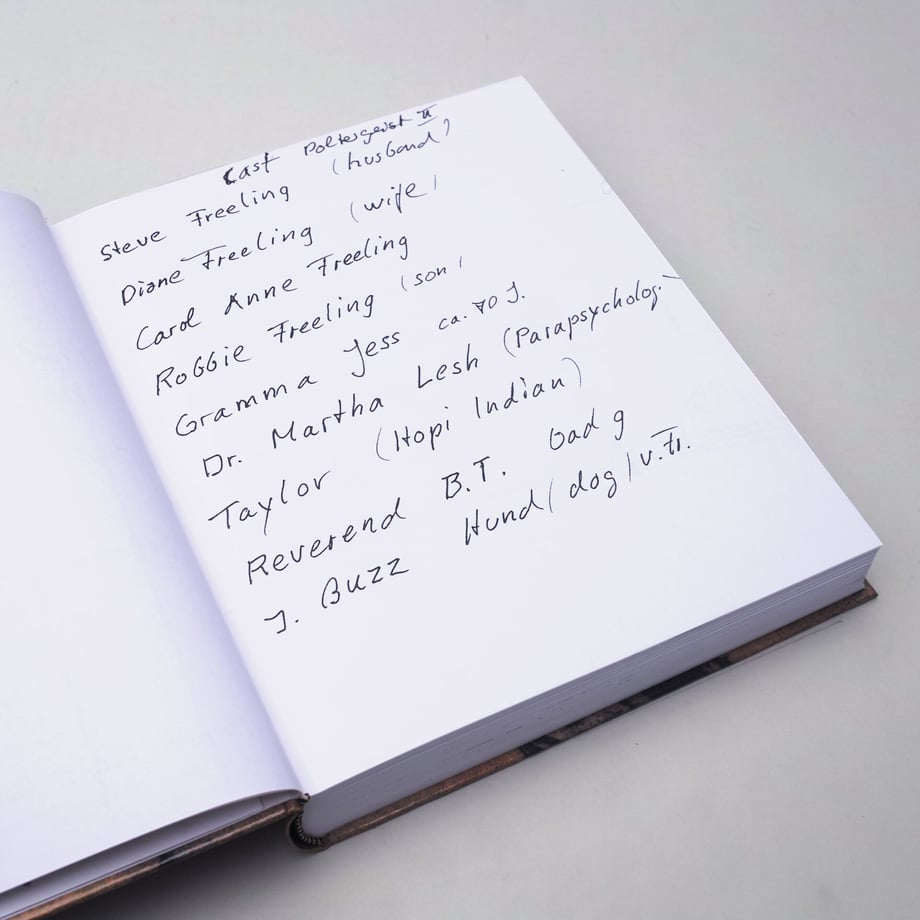 Cast Poltergeist II
Steve Freeling (husband)
Diane Freeling (wife)
Carol Anne Freeling
Robbie Freeling (son)
Gramma Jess ca. 70 J.
Dr. Martha Lesh (Parapsycholog.
Taylor (Hopi Indian)
Reverend B.T. bad g
J. Buzz Hund (dog) v. Fr.